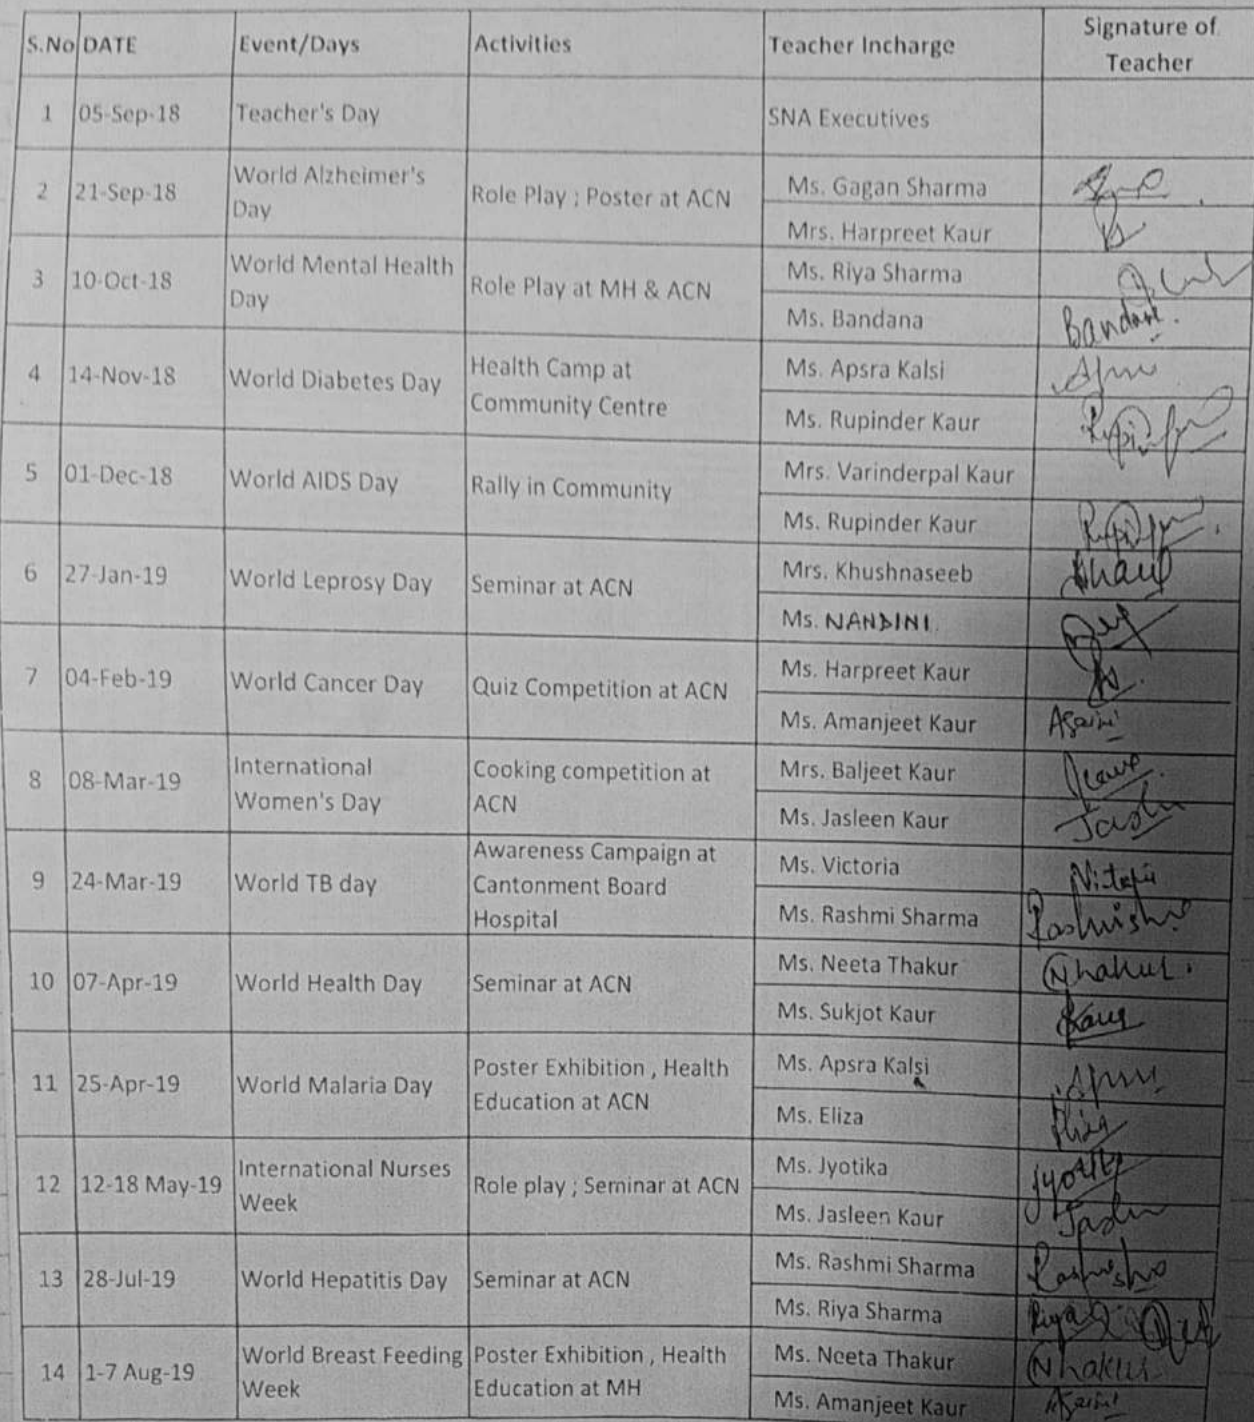 S.No DATE Event/Days Activities Teacher Incharge Signature of Teacher
1 05-Sep-18 Teacher's Day SNA Executives
2 21-Sep-18 World Alzheimer's Day Role Play ; Poster at ACN Ms. Gagan Sharma
Mrs. Harpreet Kaur
3 10-Oct-18 World Mental Health Day Role Play at MH & ACN Ms. Riya Sharma
Ms. Bandana Bandana
4 14-Nov-18 World Diabetes Day Health Camp at Community Centre Ms. Apsra Kalsi
Ms. Rupinder Kaur
5 01-Dec-18 World AIDS Day Rally in Community Mrs. Varinderpal Kaur
Ms. Rupinder Kaur
6 27-Jan-19 World Leprosy Day Seminar at ACN Mrs. Khushnaseeb
Ms. NANDINI
7 04-Feb-19 World Cancer Day Quiz Competition at ACN Ms. Harpreet Kaur
Ms. Amanjeet Kaur
8 08-Mar-19 International Women's Day Cooking competition at ACN Mrs. Baljeet Kaur
Ms. Jasleen Kaur
9 24-Mar-19 World TB day Awareness Campaign at Cantonment Board Hospital Ms. Victoria
Ms. Rashmi Sharma
10 07-Apr-19 World Health Day Seminar at ACN Ms. Neeta Thakur Nhakur.
Ms. Sukjot Kaur Kaur
11 25-Apr-19 World Malaria Day Poster Exhibition , Health Education at ACN Ms. Apsra Kalsi
Ms. Eliza
12 12-18 May-19 International Nurses Week Role play ; Seminar at ACN Ms. Jyotika
Ms. Jasleen Kaur
13 28-Jul-19 World Hepatitis Day Seminar at ACN Ms. Rashmi Sharma
Ms. Riya Sharma
14 1-7 Aug-19 World Breast Feeding Week Poster Exhibition , Health Education at MH Ms. Neeta Thakur Nhakur
Ms. Amanjeet Kaur